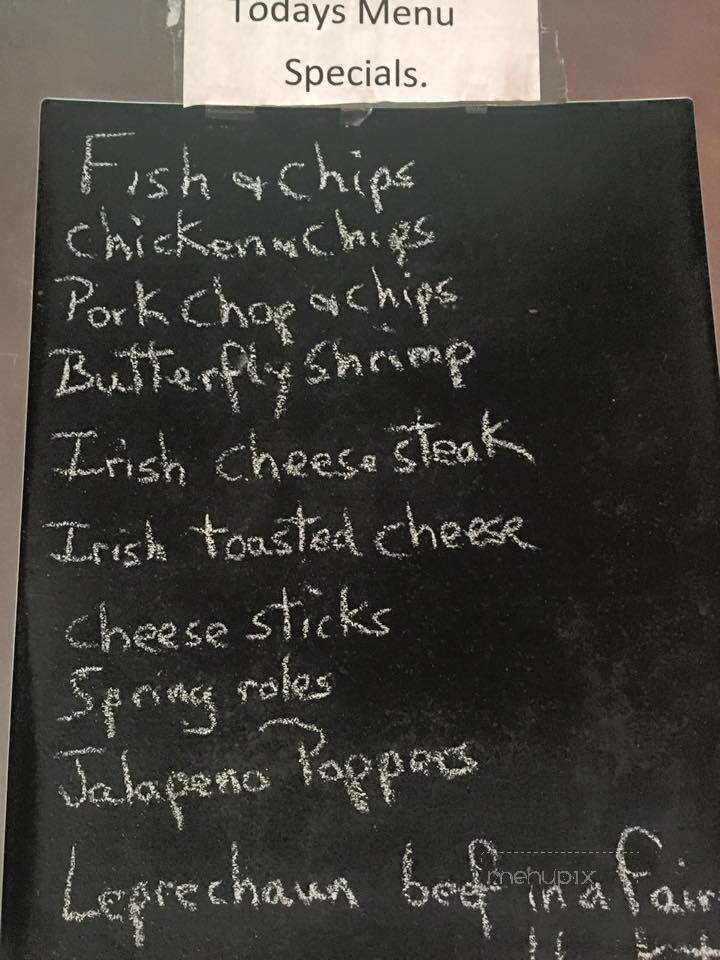 Todays Menu
Specials.
Fish & chips
chicken & chips
Pork Chop & chips
Butterfly Shrimp
Irish cheese steak
Irish toasted cheese
cheese sticks
Spring roles
Jalapeno Poppers
Leprechaun beef in a Fair
mehupix